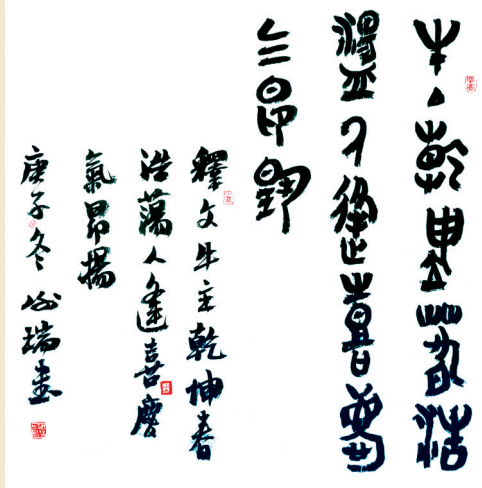 牛主乾坤春浩
蕩人逢喜慶
气昂揚
釋文牛主乾坤春
浩蕩人逢喜慶
氣昂揚
庚子冬瑞書